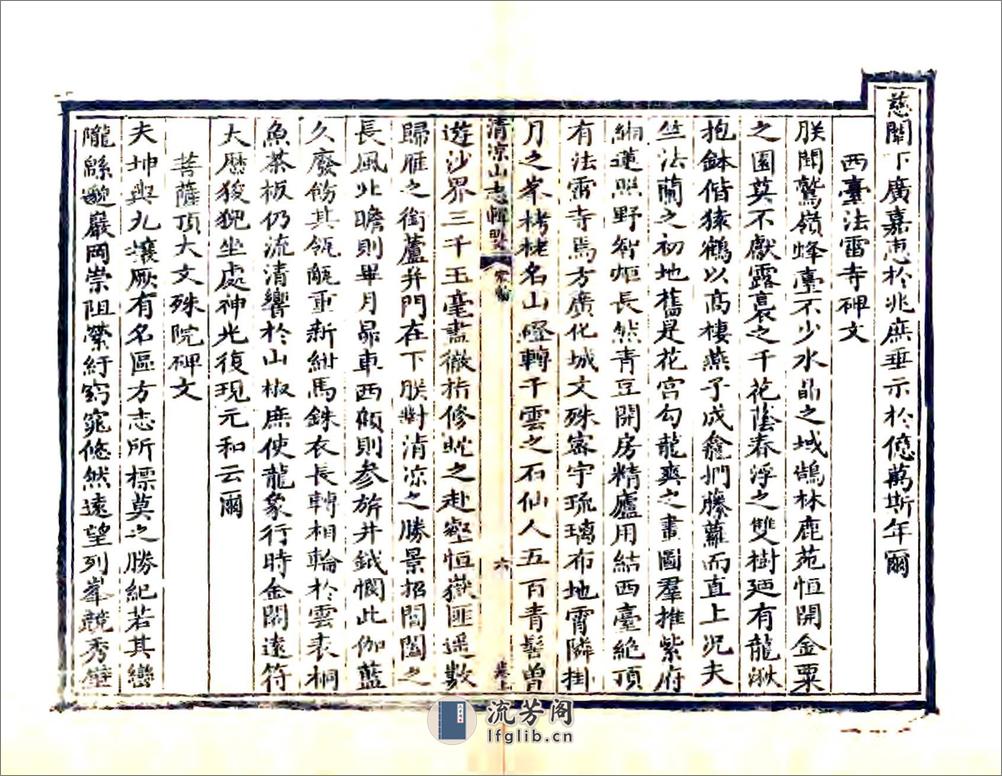 慈闈下廣嘉惠於兆庶垂示於億萬斯年爾
西臺法雷寺碑文
朕聞鷲嶺蜂臺不少水晶之域鵠林鹿苑恒開金粟
之園莫不獻露裛之千花蔭春浮之雙樹廼有龍湫
抱鉢偕猿鶴以高棲燕子成龕捫藤蘿而直上況夫
竺法蘭之初地舊是花宫勾龍爽之畫圖羣推紫府
緗蓮照野智炬長然青豆開房精廬用結西臺絶頂
有法雷寺焉方廣化城文殊寄宇琉璃布地霄隣掛
月之峯栲栳名山磴轉干雲之石仙人五百青髻曾
遊沙界三千玉毫盡徹指修虵之赴壑恒嶽匪遥數
歸雁之銜蘆井門在下朕對清凉之勝景招閶闔之
長風北瞻則畢月昴東西傾則参旂井鉞憫此伽藍
久廢飭其瓴甋重新紺馬銖衣長轉相輪於雲表桐
魚茶板仍流清響於山椒庶使龍象行時金閣遠符
大厯狻猊坐處神光復現元和云爾
菩薩頂大文殊院碑文
夫坤輿九壤厥有名區方志所標莫之勝紀若其巒
隴緜邈巖岡崇阻縈紆窈窕悠然遠望列峯競秀壁
清凉山志輯要
六
卷上
流芳阁
lfglib.cn